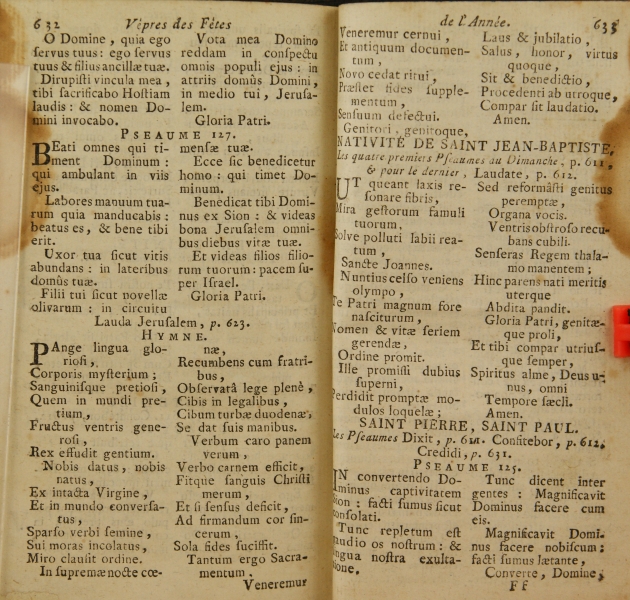 632 Vêpres des Fêtes
O Domine, quia ego
ſervus tuus: ego ſervus
tuus & filius ancillæ tuæ.
Dirupiſti vincula mea,
tibi ſacrificabo Hoſtiam
laudis: & nomen Do-
mini invocabo.
Vota mea Domino
reddam in conſpectu
omnis populi ejus: in
attriis domûs Domini,
in medio tui, Jeruſa-
lem.
Gloria Patri.
PSEAUME 127.
BEati omnes qui ti-
ment Dominum:
qui ambulant in viis
ejus.
Labores manuum tua-
rum quia manducabis:
beatus es, & bene tibi
erit.
Uxor tua ſicut vitis
abundans: in lateribus
domûs tuæ.
Filii tui ſicut novellæ
olivarum: in circuitu
menſæ tuæ.
Ecce ſic benedicetur
homo: qui timet Do-
minum.
Benedicat tibi Domi-
nus ex Sion: & videas
bona Jeruſalem omni-
bus diebus vitæ tuæ.
Et videas filios filio-
rum tuorum: pacem ſu-
per Iſrael.
Gloria Patri.
Lauda Jeruſalem, p. 623.
HYMNE.
PAnge lingua glo-
rioſi,
Corporis myſterium;
Sanguiniſque pretioſi,
Quem in mundi pre-
tium,
Fructus ventris gene-
roſi,
Rex effudit gentium.
Nobis datus, nobis
natus,
Ex intacta Virgine,
Et in mundo converſa-
tus,
Sparſo verbi ſemine,
Sui moras incolatus,
Miro clauſit ordine.
In ſupremæ nocte cœ-
næ,
Recumbens cum fratri-
bus,
Obſervatâ lege plenè,
Cibis in legalibus,
Cibum turbæ duodenæ,
Se dat ſuis manibus.
Verbum caro panem
verum,
Verbo carnem efficit,
Fitque ſanguis Chriſti
merum,
Et ſi ſenſus deficit,
Ad firmandum cor ſin-
cerum,
Sola fides ſufficit.
Tantum ergo Sacra-
mentum,
Veneremur
de l'Année. 633
Veneremur cernui,
Et antiquum documen-
tum,
Novo cedat ritui,
Præſtet fides ſupple-
mentum,
Senſuum defectui.
Genitori, genitoque,
Laus & jubilatio,
Salus, honor, virtus
quoque,
Sit & benedictio,
Procedenti ab utroque,
Compar ſit laudatio.
Amen.
NATIVITÉ DE SAINT JEAN-BAPTISTE,
Les quatre premiers Pſeaumes au Dimanche, p. 611,
& pour le dernier, Laudate, p. 612.
UT queant laxis re-
ſonare fibris,
Mira geſtorum famuli
tuorum,
Solve polluti labii rea-
tum,
Sancte Joannes.
Nuntius celſo veniens
olympo,
Te Patri magnum fore
naſciturum,
Nomen & vitæ ſeriem
gerendæ,
Ordine promit.
Ille promiſſi dubius
ſuperni,
Perdidit promptæ mo-
dulos loquelæ;
Sed reformâſti genitus
peremptæ,
Organa vocis.
Ventris obſtroſo recu-
bans cubili,
Senſeras Regem thala-
mo manentem;
Hinc parens nati meritis
uterque
Abdita pandit.
Gloria Patri, genitæ-
que proli,
Et tibi compar utriuſ-
que ſemper,
Spiritus alme, Deus u-
nus, omni
Tempore ſæcli.
Amen.
SAINT PIERRE, SAINT PAUL.
Les Pſeaumes Dixit, p. 611. Confitebor, p. 612,
Credidi, p. 631.
PSEAUME 125.
IN convertendo Do-
minus captivitatem
Sion: facti ſumus ſicut
conſolati.
Tunc repletum eſt
gaudio os noſtrum: &
lingua noſtra exulta-
tione.
Tunc dicent inter
gentes: Magnificavit
Dominus facere cum
eis.
Magnificavit Domi-
nus facere nobiſcum:
facti ſumus lætante,
Converte, Domine,
F f